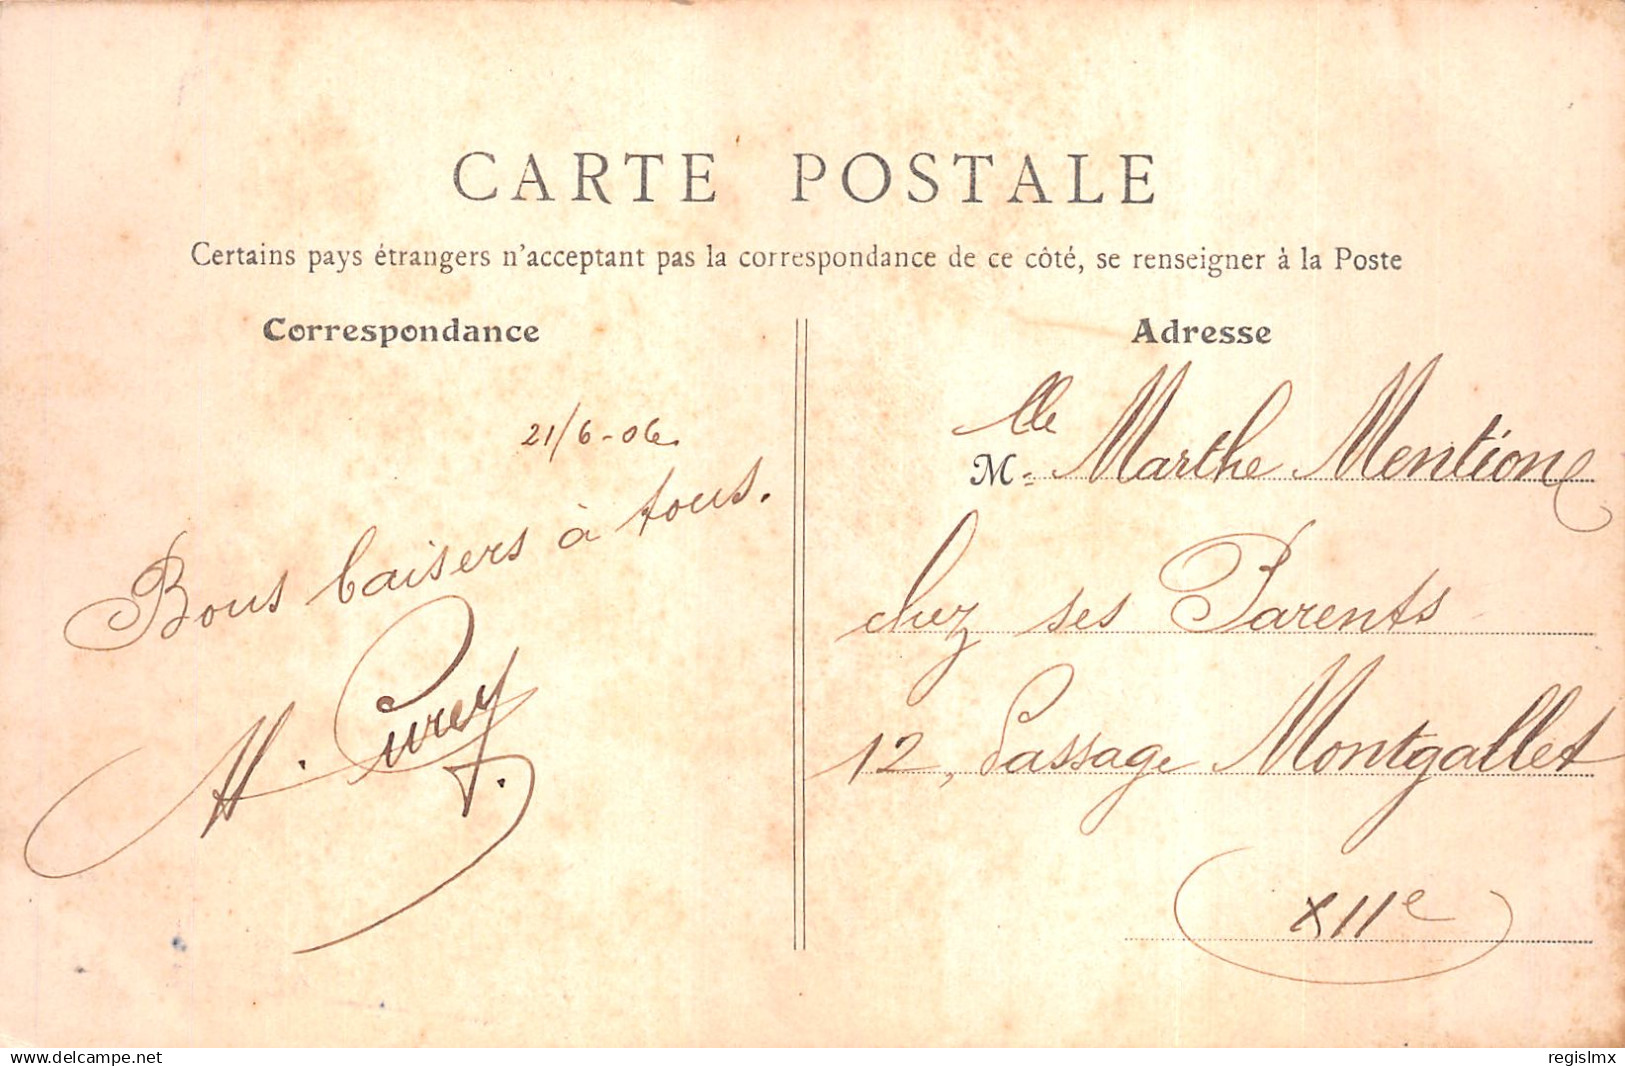 CARTE POSTALE
Certains pays étrangers n'acceptant pas la correspondance de ce côté, se renseigner à la Poste
Correspondance
21/6-06.
Bons baisers à tous.
Adresse
Mlle Marthe Mentione
chez ses Parents
12, Passage Montgallet
XIIe
delcampe.net
regislmx